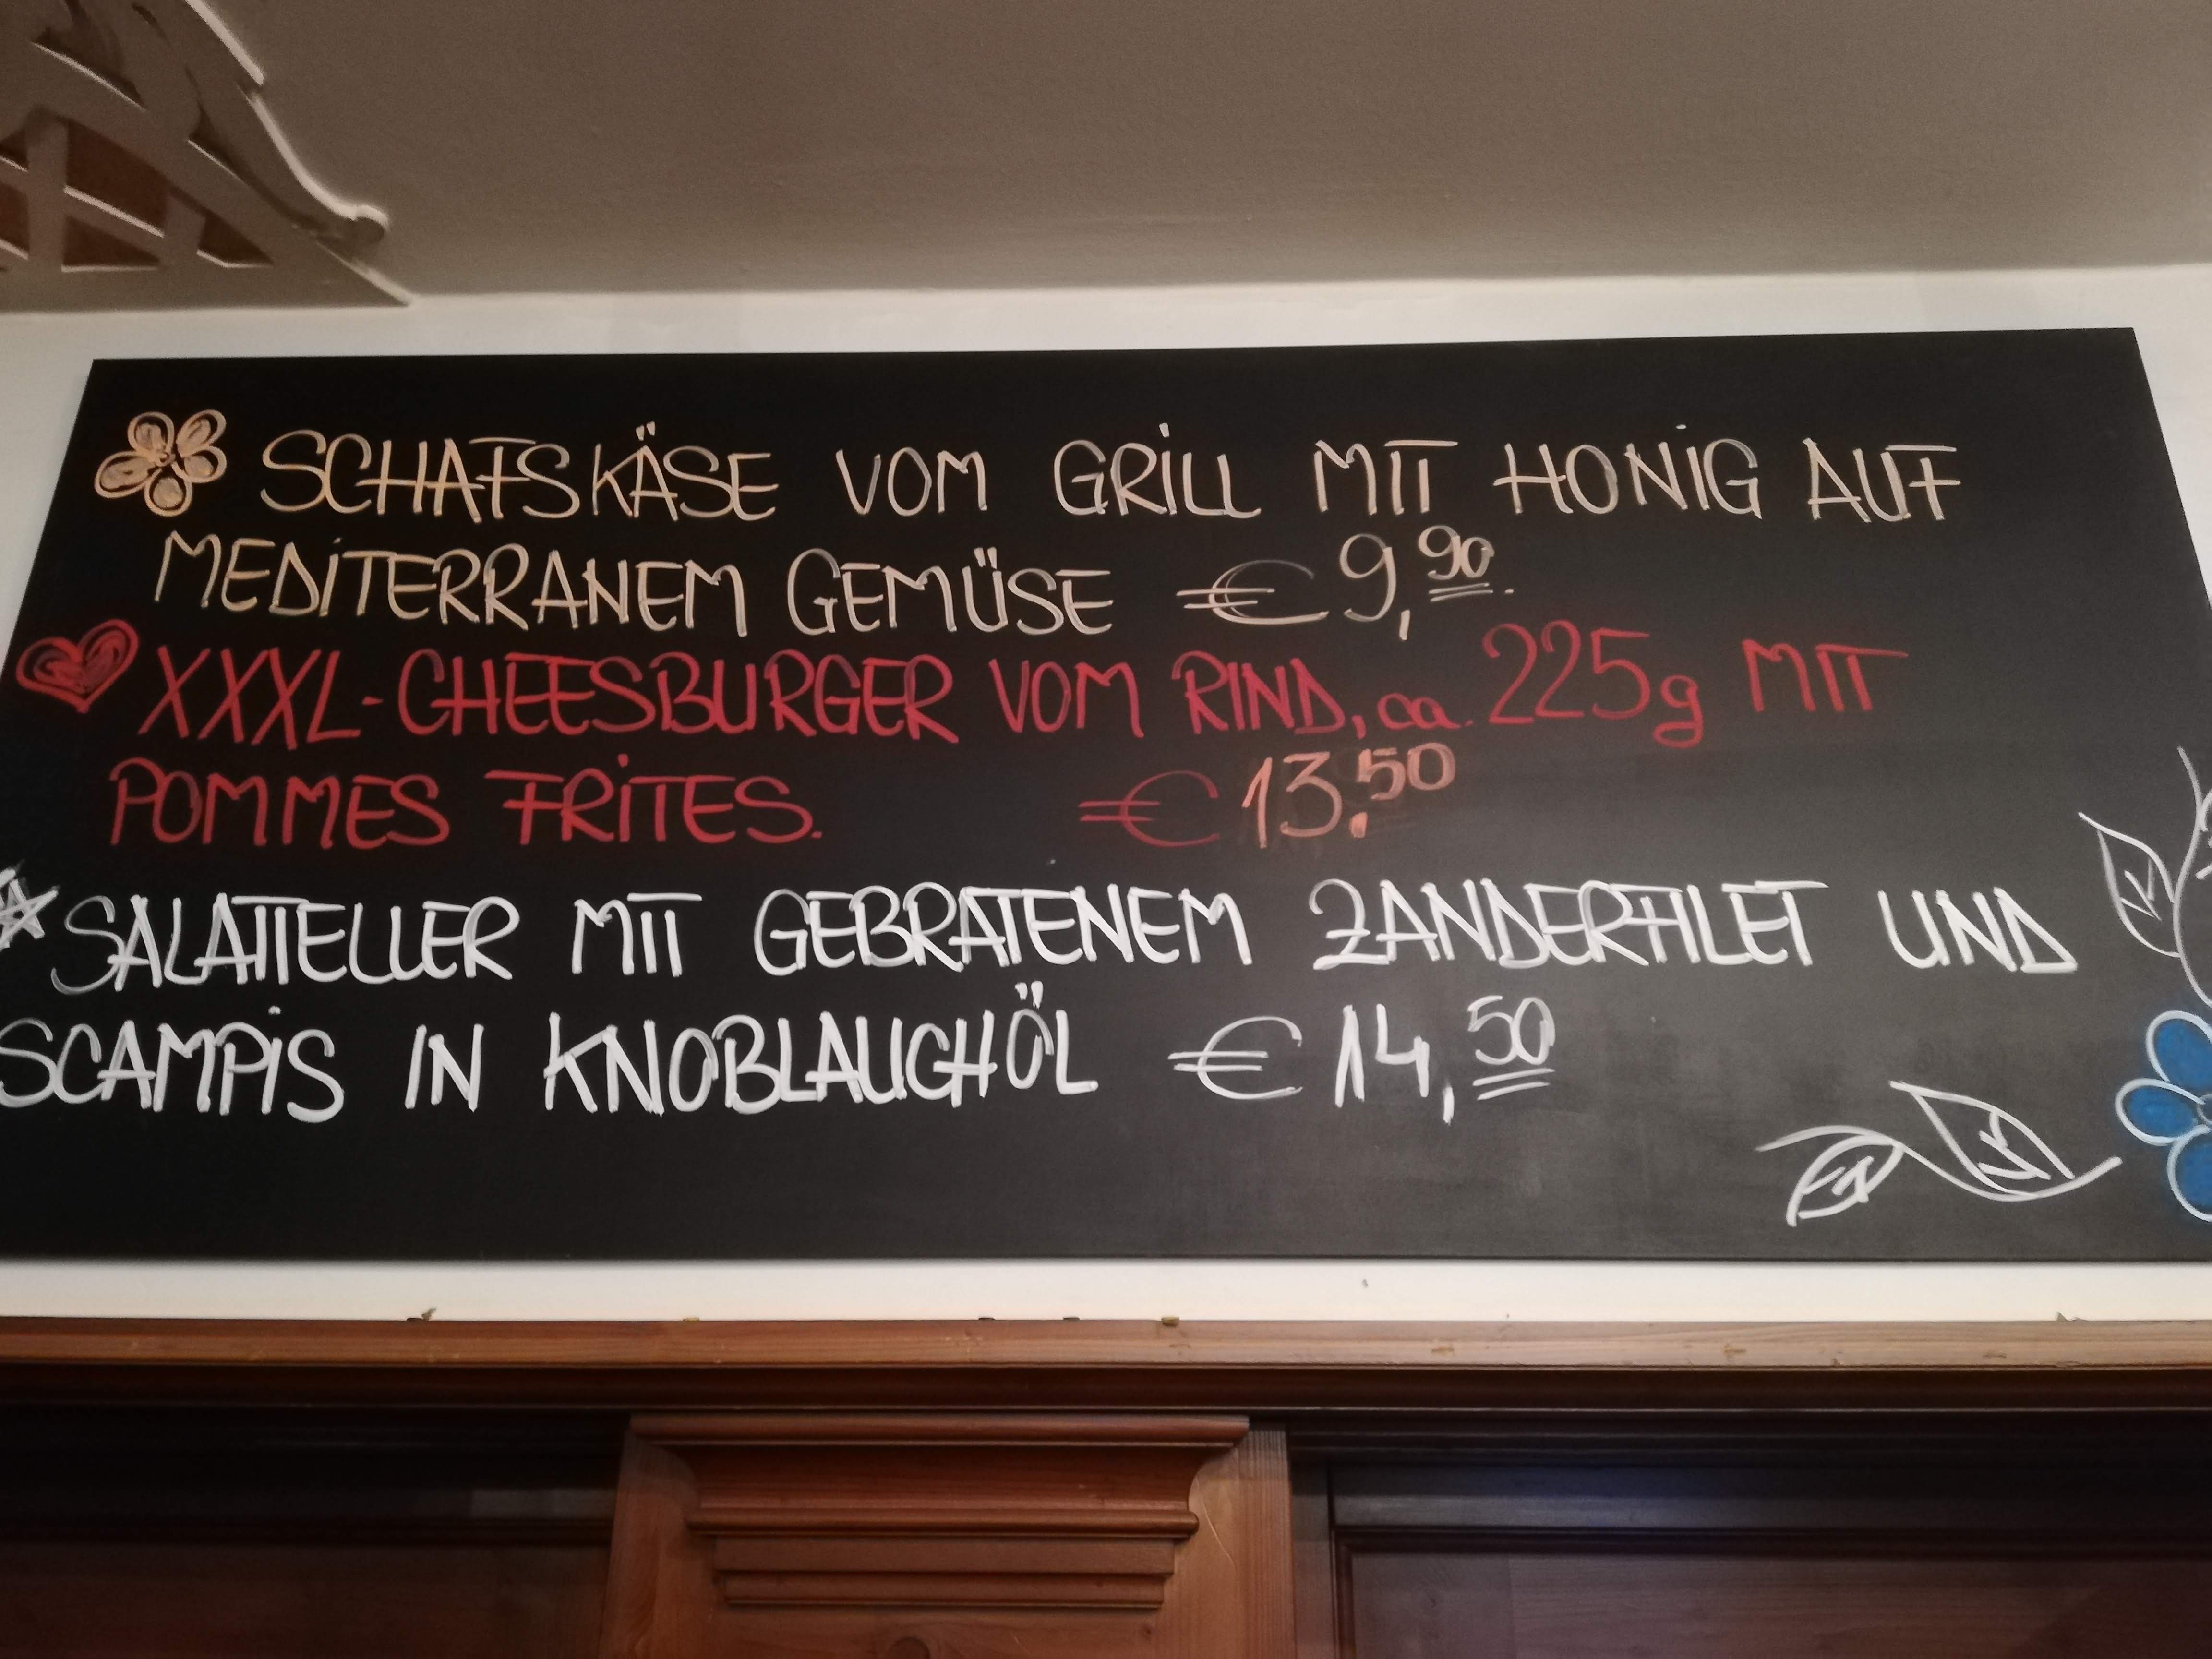 SCHAFSKÄSE VOM GRiLL MIT HONiG AUF
MEDiTERRANEM GEMÜSE € 9,90.
XXXL-CHEESBURGER VOM RIND, ca. 225g MIT
POMMES FRiTES. € 13.50
SALATTELLER MIT GEBRATENEM ZANDERFILET UND
SCAMPiS IN KNOBLAUCHÖL € 14,50